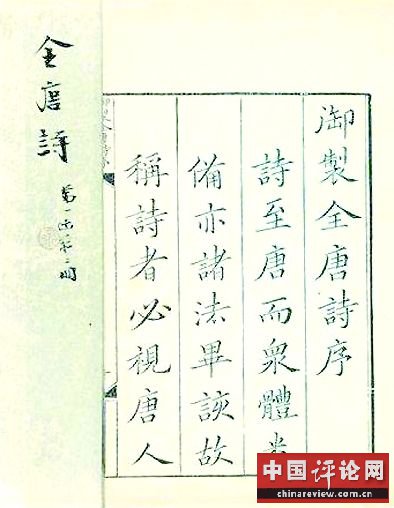 御製全唐詩序
詩至唐而衆體悉
備亦諸法畢該故
稱詩者必視唐人
全唐詩
中国评论网
chinareview.com.cn